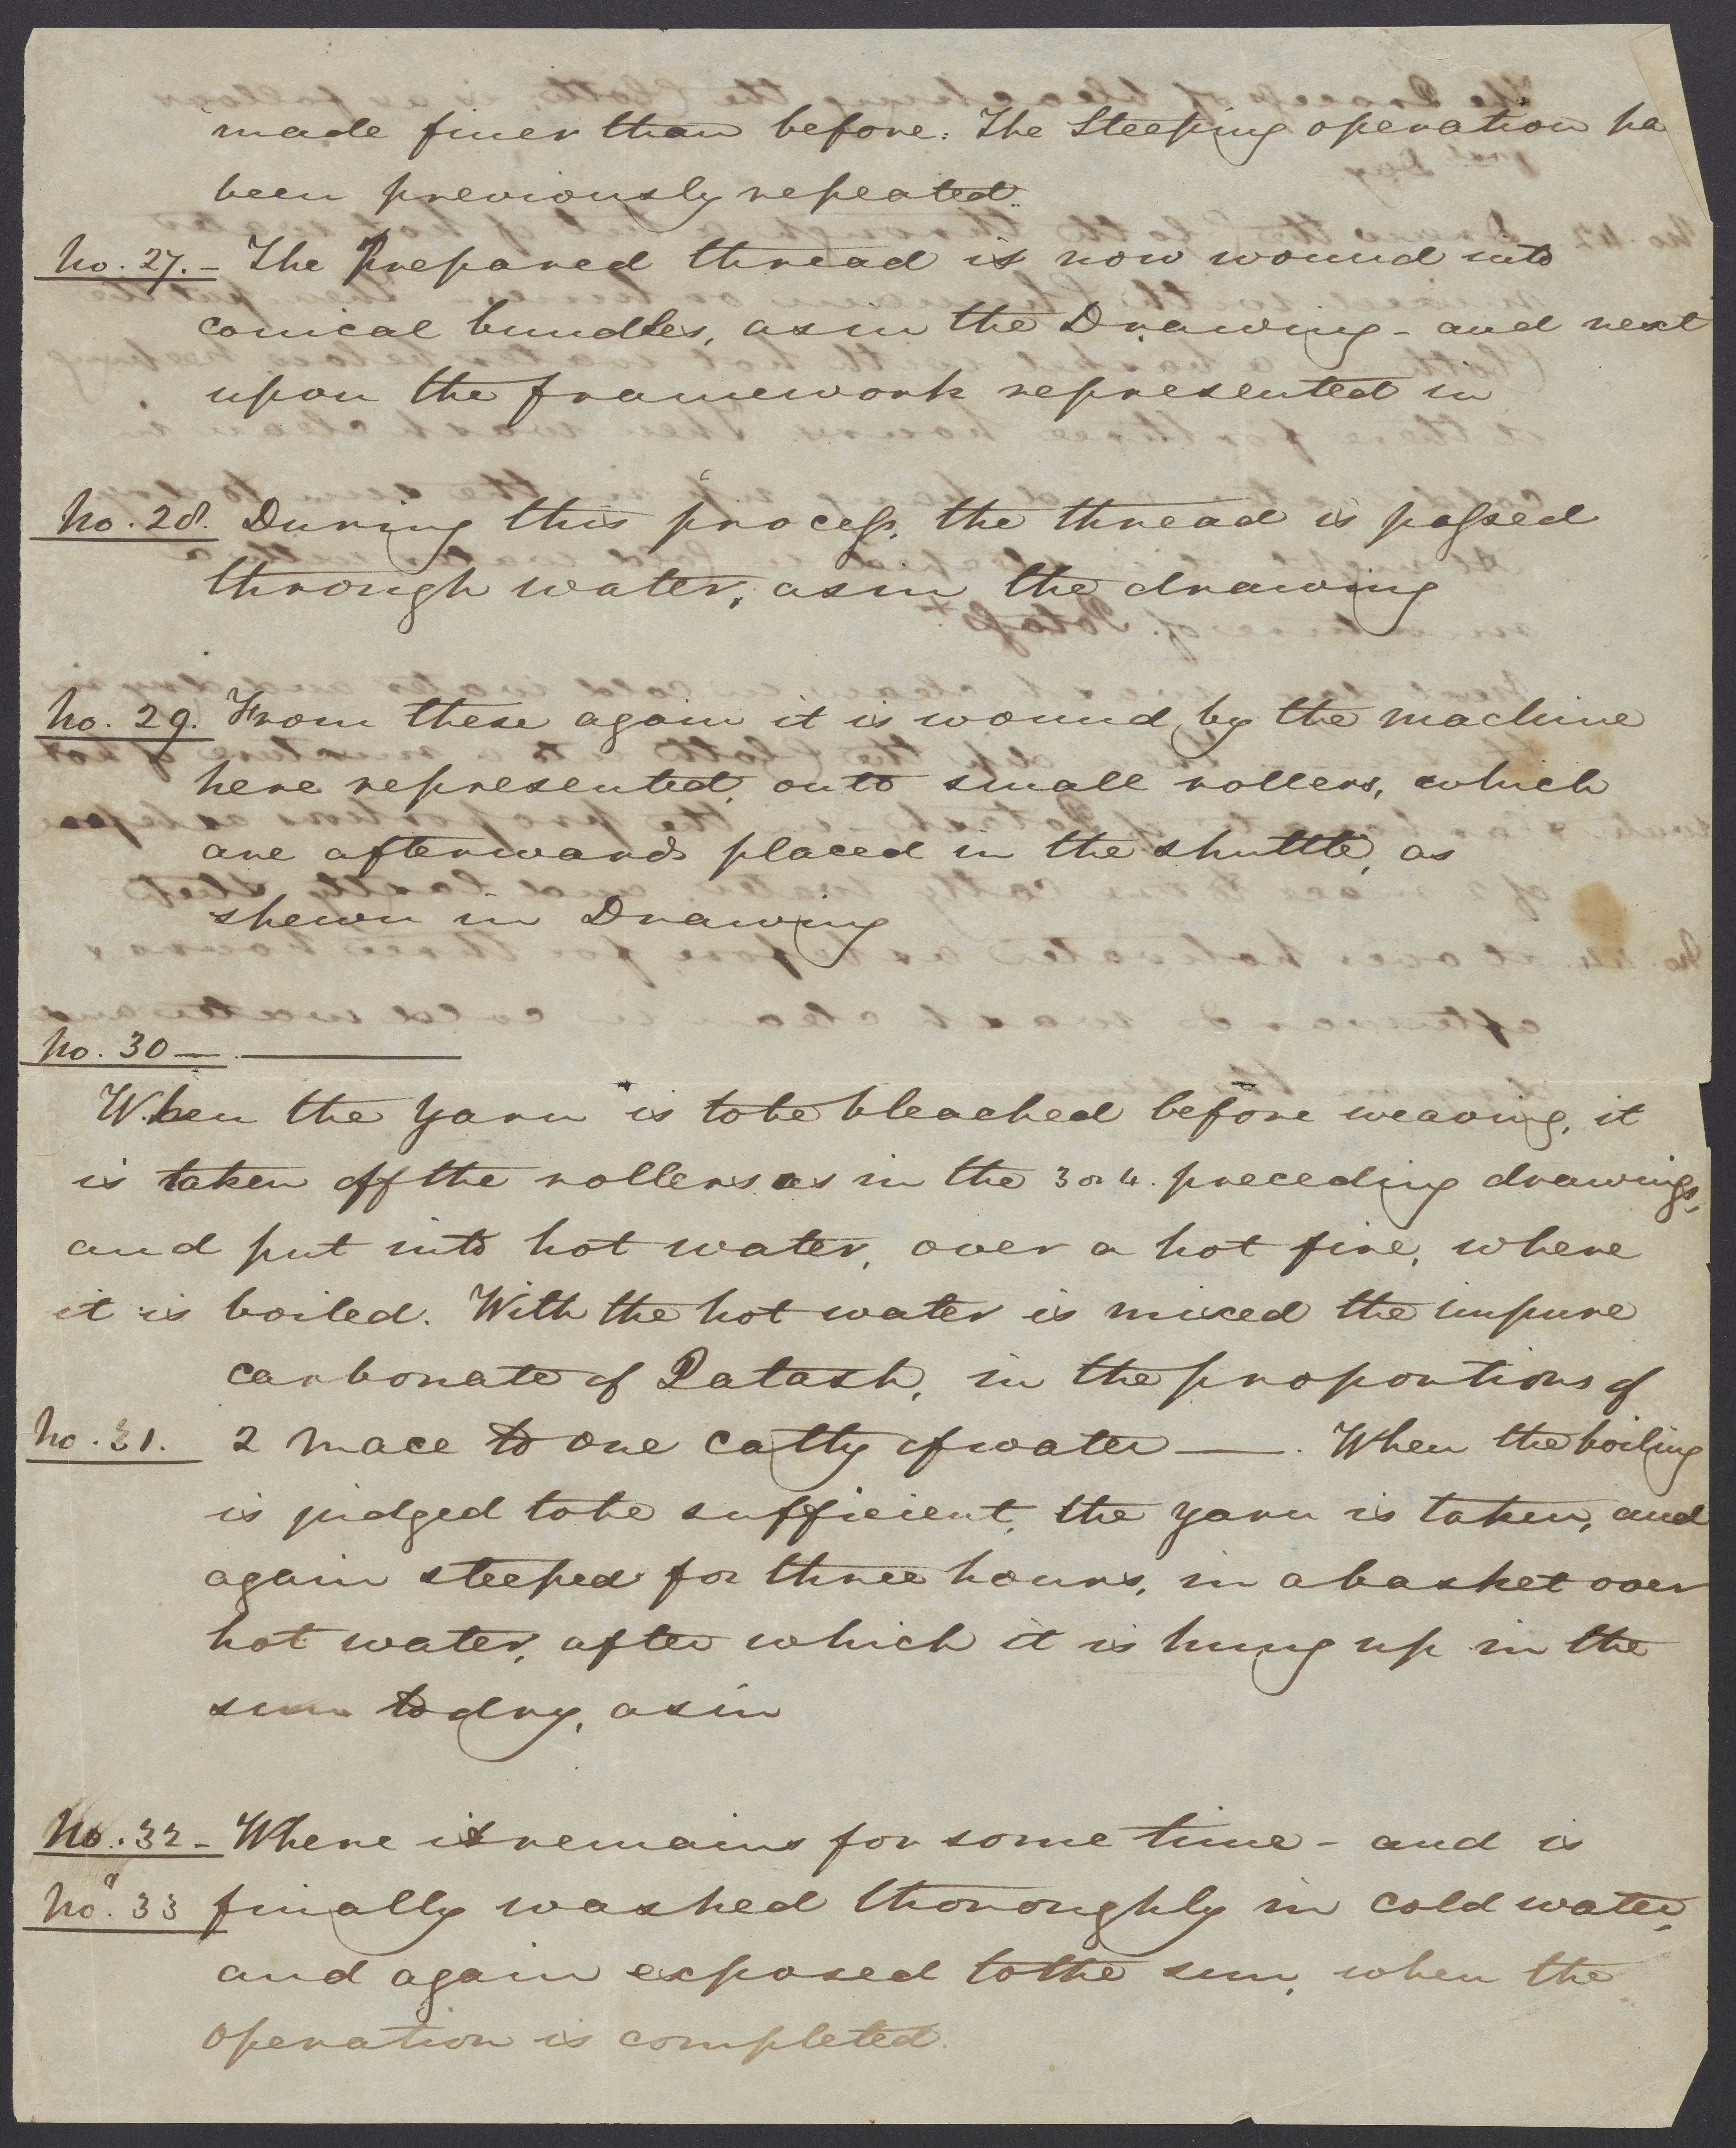 made finer than before. The Steeping operation ha
been previously repeated.
No. 27. - The Prepared thread is now wound into
conical bundles, as in the Drawing - and next
upon the framework represented in
No. 28. During this process, the thread is passed
through water, as in the drawing
No. 29. From these again it is wound by the machine
here represented, onto small rollers, which
are afterwards placed in the shuttle, as
shewn in Drawing
No. 30 —
When the Yarn is to be bleached before weaving, it
is taken off the rollers as in the 3 or 4. preceding drawings,
and put into hot water, over a hot fire, where
it is boiled. With the hot water is mixed the impure
carbonate of Patash, in the proportions of
No. 31. 2 mace to one catty of water —. When the boiling
is judged to be sufficient, the yarn is taken, and
again steeped for three hours, in a basket over
hot water, after which it is hung up in the
sun to dry, as in
No. 32 - Where it remains for some time - and is
No. 33 finally washed thoroughly in cold water,
and again exposed to the sun, when the
operation is completed.